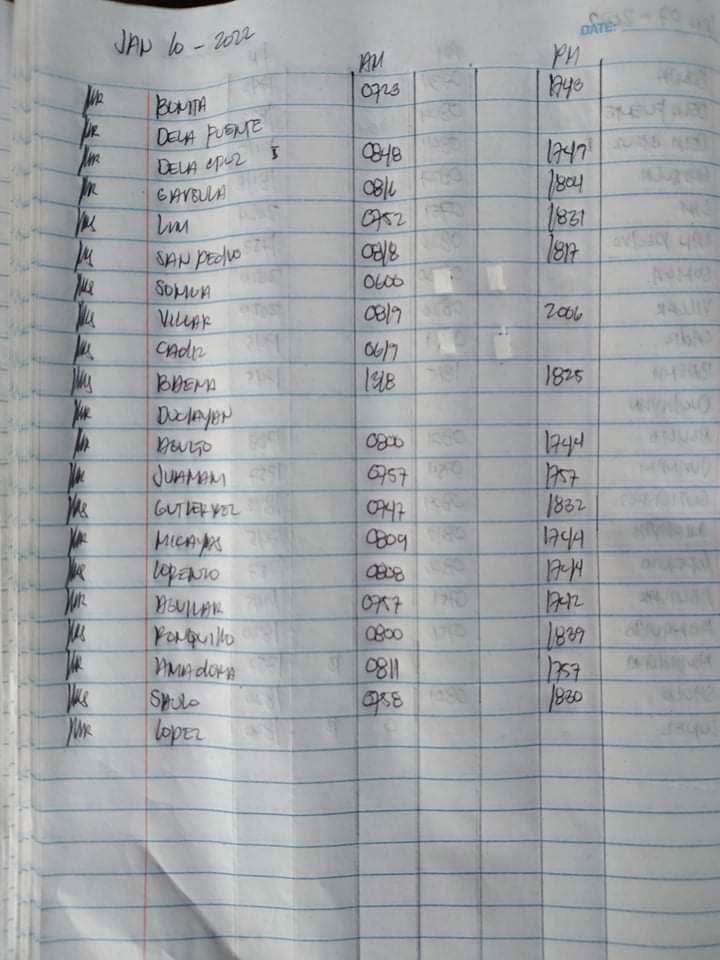 JAN 10 - 2022
DATE:
AM PM
MR BONITA 0723 1743
MR DELA FUENTE
MR DELA CRUZ 0848 1747
MR GAVIOLA 0816 1804
MS LIM 0752 1831
MS SAN PEDRO 0818 1817
MS 0600
MS VILLAR 0819 2006
MS CADIZ 0619
MS BAENA 1318 1825
MR DUCLAYAN
MR 0800 1744
MR JUAMANI 0757 1757
MS GUTIERREZ 0747 1832
MR 0809 1744
MS LORENZO 0808 1744
MR AGUILAR 0757 1742
MS RONQUILLO 0800 1839
MR AMADORA 0811 1757
MS SAULO 0758 1830
MR LOPEZ